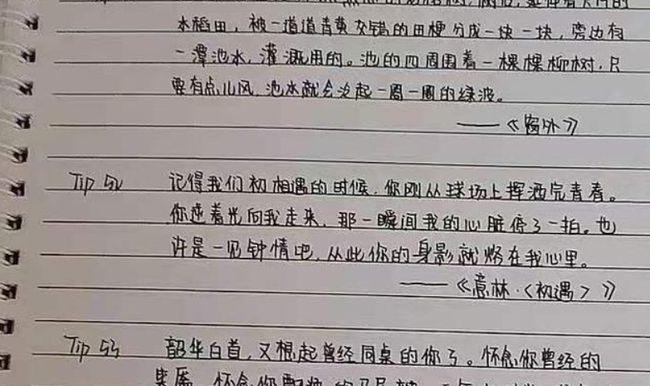 水稻田，被一道道青黄交错的田梗分成一块一块，旁边有
一潭池水，灌溉用的。池的四周围着一棵棵柳树，只
要有点儿风，池水就会泛起一圈一圈的绿波。
——《窗外》
Tip 52 记得我们初相遇的时候，你刚从球场上挥洒完青春。
你逆着光向我走来，那一瞬间我的心脏停了一拍。也
许是一见钟情吧，从此你的身影就烙在我心里。
——《意林·<初遇>》
Tip 53 韶华白首，又想起曾经同桌的你了。怀念你曾经的